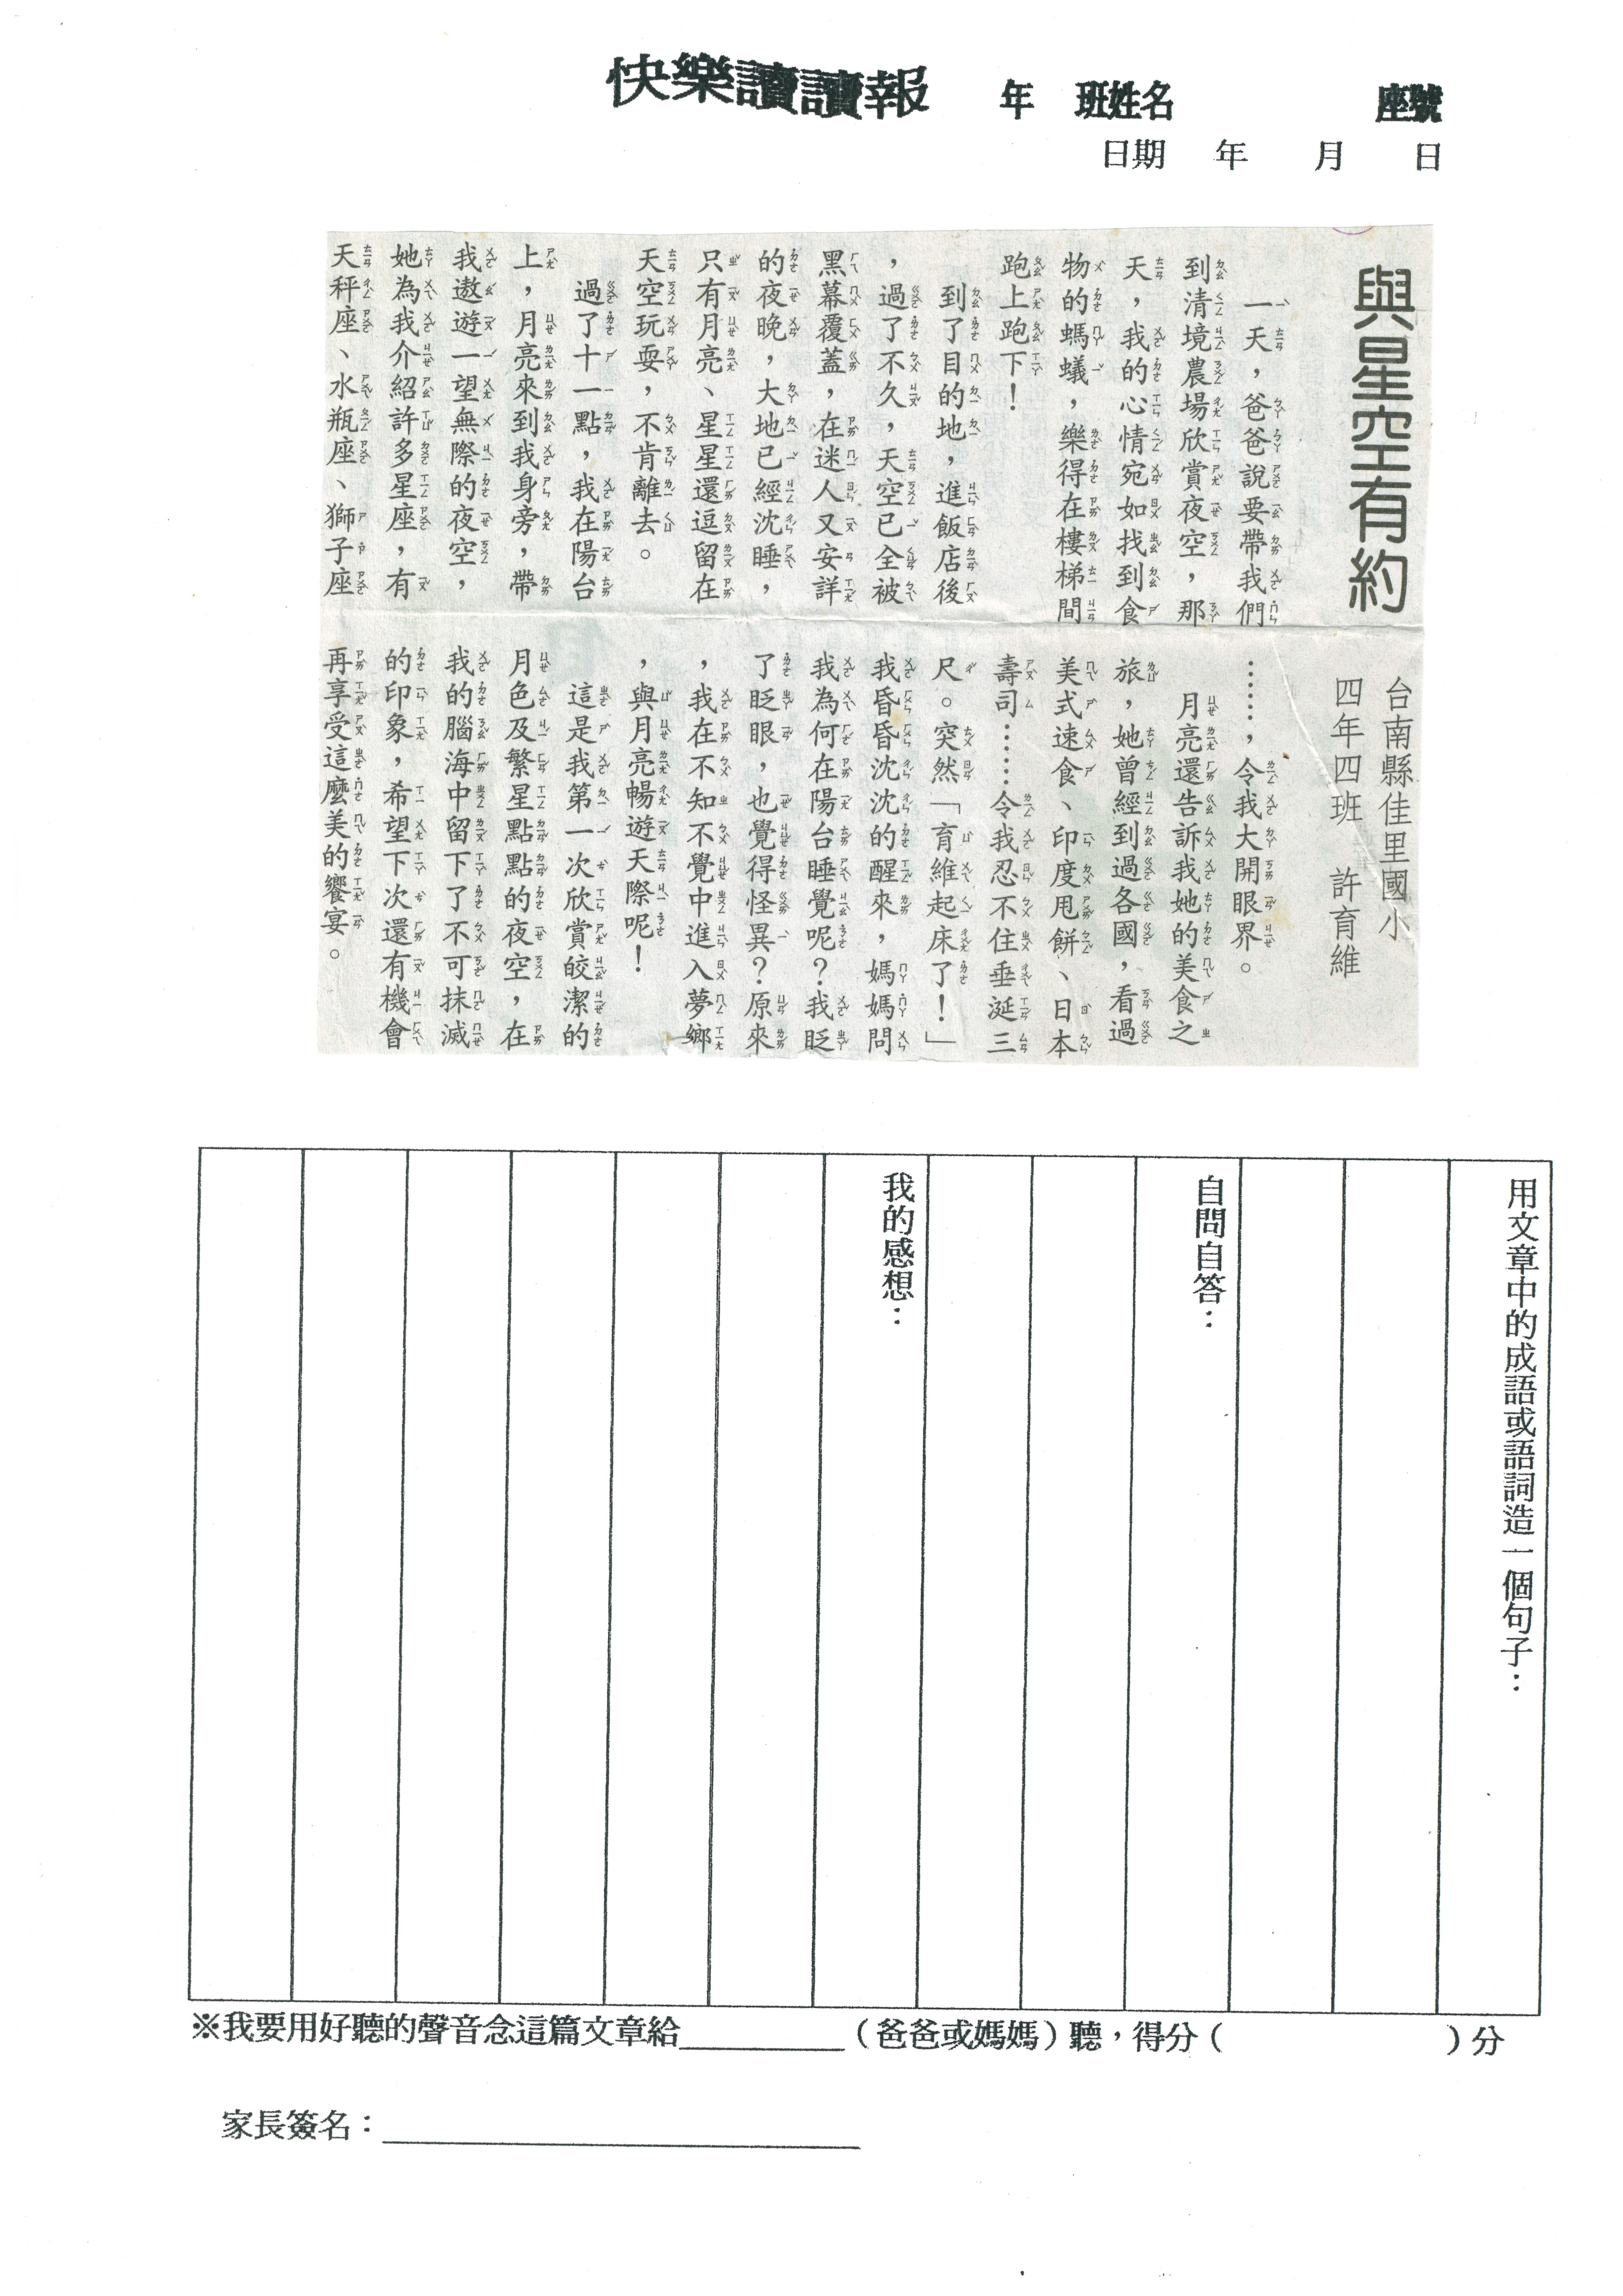 快樂讀讀報　年　班姓名　座號
日期　年　月　日
與星空有約
台南縣佳里國小
四年四班　許育維
一天，爸爸說要帶我們
到清境農場欣賞夜空，那
天，我的心情宛如找到食
物的螞蟻，樂得在樓梯間
跑上跑下！
到了目的地，進飯店後
，過了不久，天空已全被
黑幕覆蓋，在迷人又安詳
的夜晚，大地已經沈睡，
只有月亮、星星還逗留在
天空玩耍，不肯離去。
過了十一點，我在陽台
上，月亮來到我身旁，帶
我遨遊一望無際的夜空，
她為我介紹許多星座，有
天秤座、水瓶座、獅子座
……，令我大開眼界。
月亮還告訴我她的美食之
旅，她曾經到過各國，看過
美式速食、印度甩餅、日本
壽司……令我忍不住垂涎三
尺。突然「育維起床了！」
我昏昏沈沈的醒來，媽媽問
我為何在陽台睡覺呢？我眨
了眨眼，也覺得怪異？原來
，我在不知不覺中進入夢鄉
，與月亮暢遊天際呢！
這是我第一次欣賞皎潔的
月色及繁星點點的夜空，在
我的腦海中留下了不可抹滅
的印象，希望下次還有機會
再享受這麼美的饗宴。
用文章中的成語或語詞造一個句子：
自問自答：
我的感想：
※我要用好聽的聲音念這篇文章給__________（爸爸或媽媽）聽，得分（　　　）分
家長簽名：______________________________